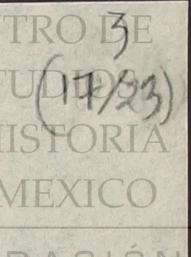 TRO DE
3
TUDIOS
(17/23)
ISTORIA
MEXICO
RACIÓN